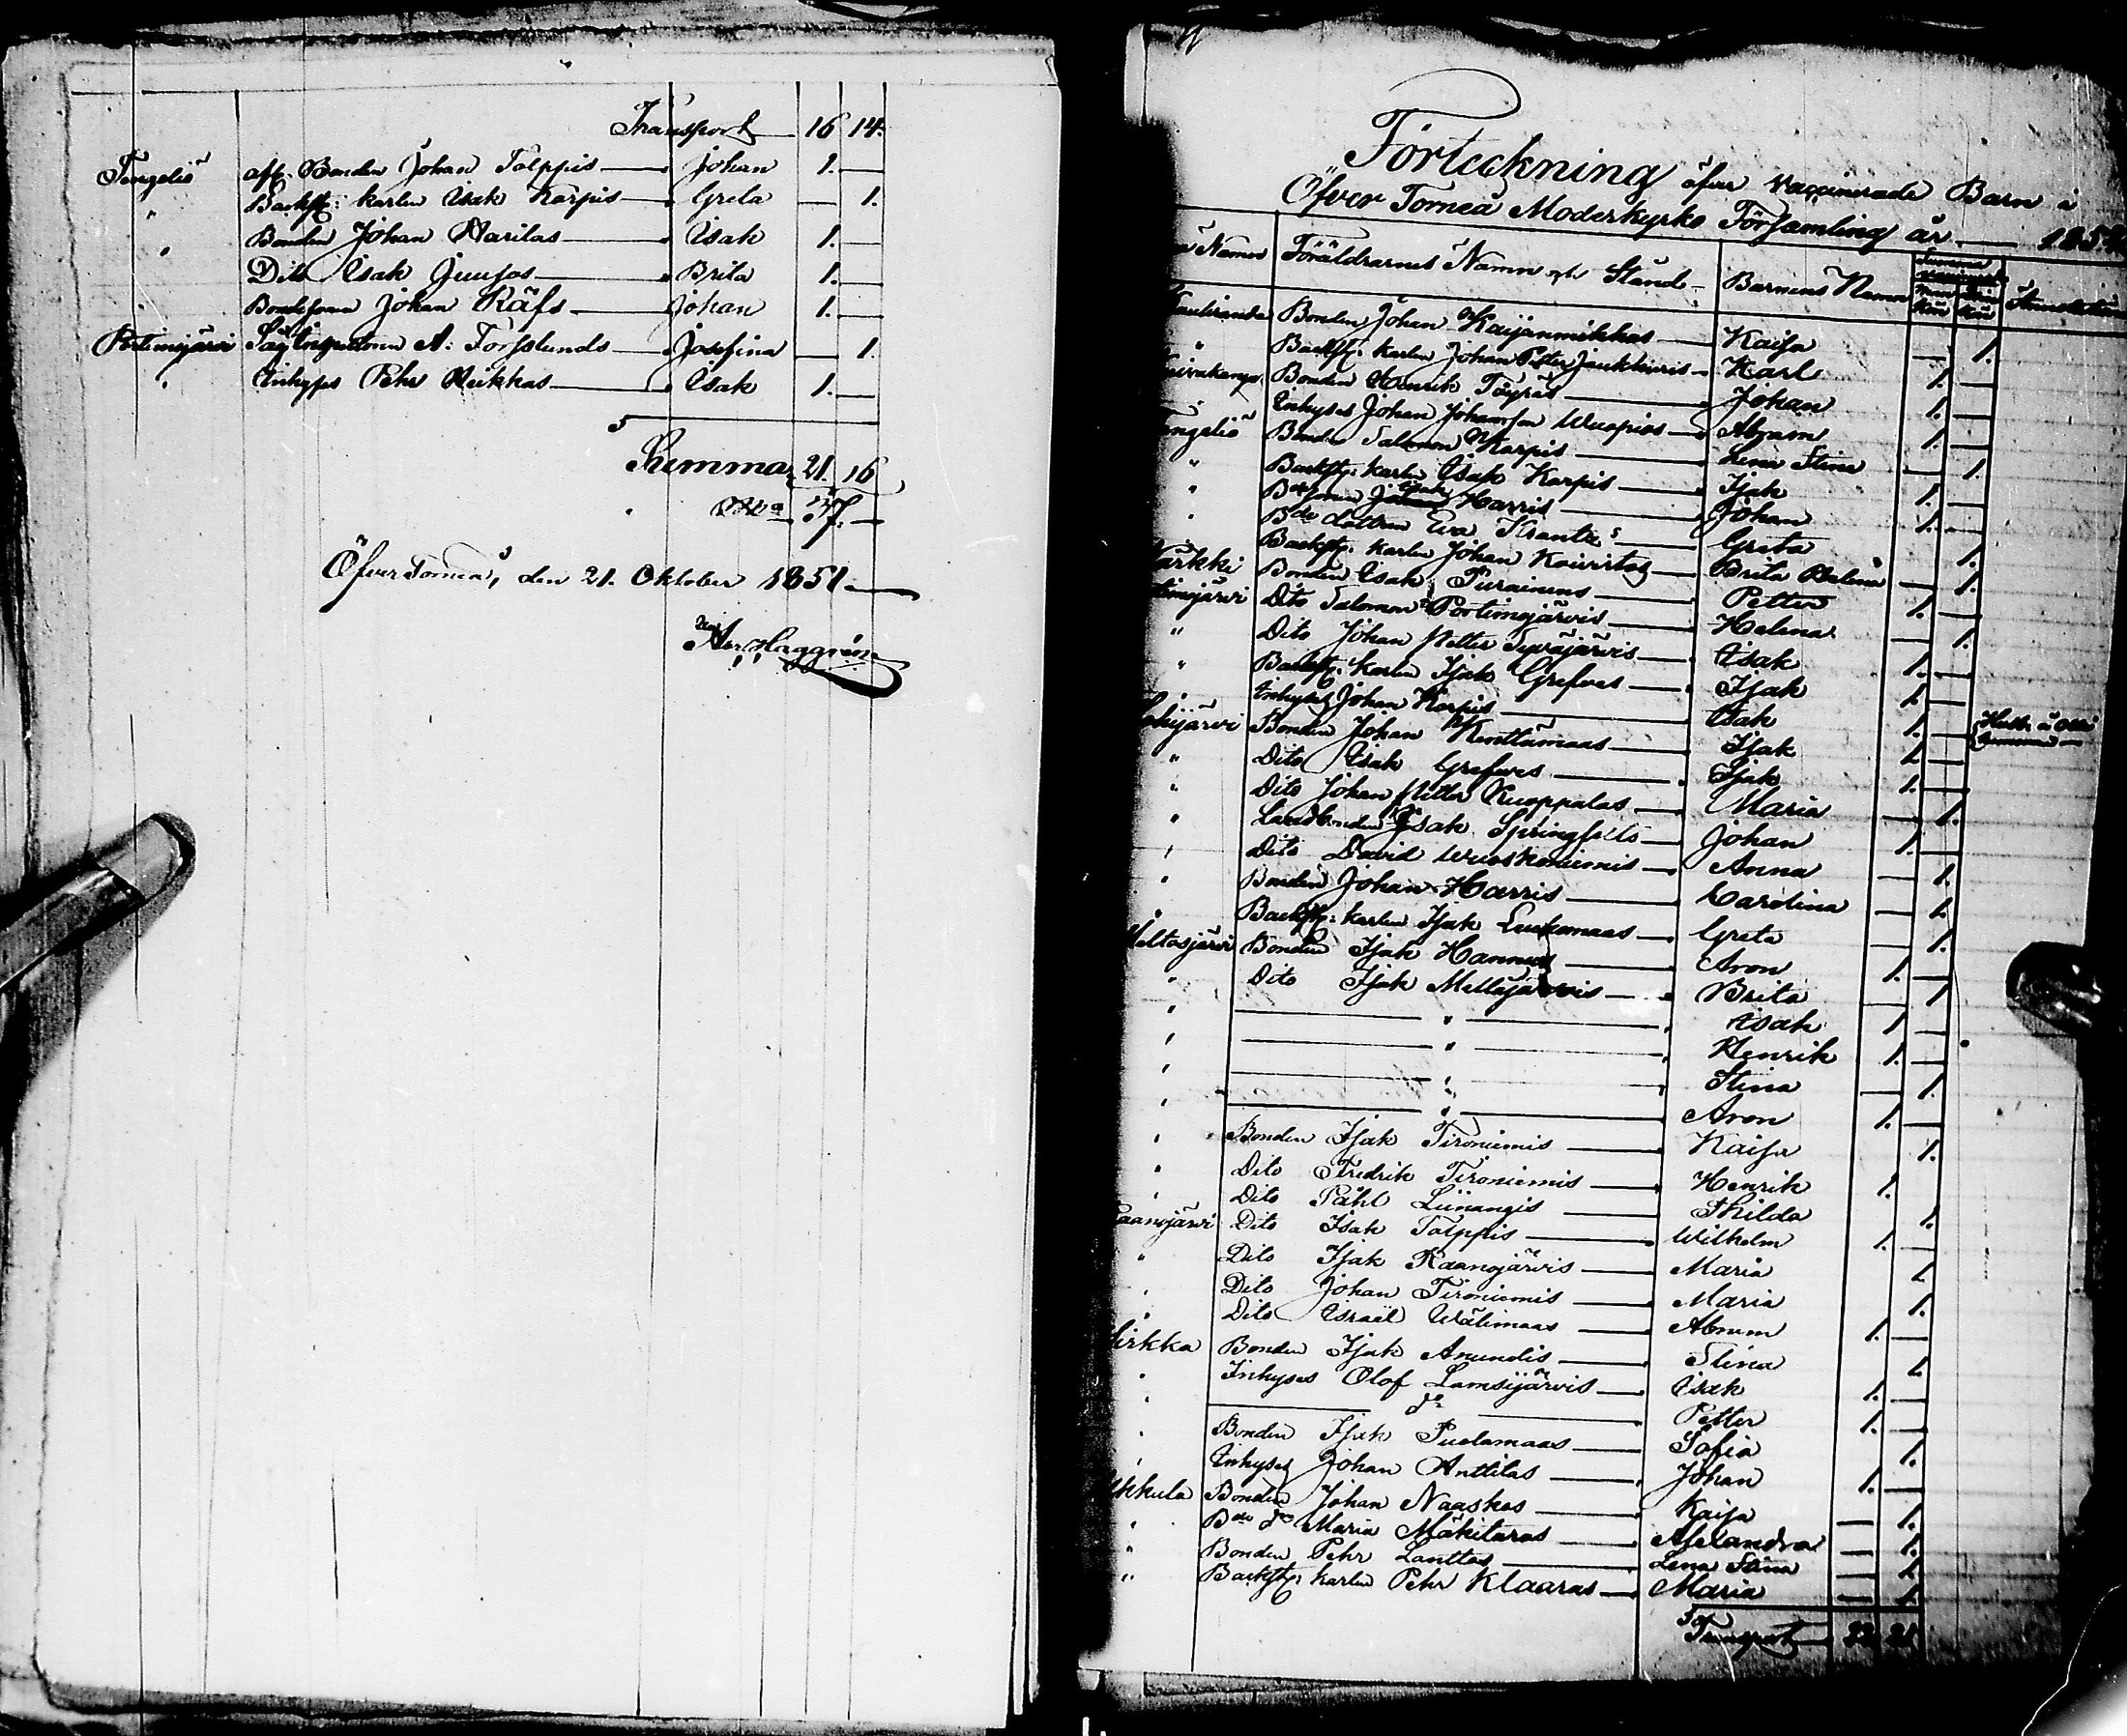 Transport 16 14.
Tengeliö aff. Bonden Johan Tolppis Johan 1.
" Backst: karlen Isak Karpis Greta 1.
" Bonden Johan Harilas Isak 1.
Dito Isak Juusos Brita 1.
" Bondesonen Johan Räfs Johan 1.
Portimojärvi A: Forsslunds Josefina 1.
" Inhyses Pehr Heikkas Isak 1.
Summa 21. 16
37.
ÖfverTorneå, den 21. Oktober 1851.
Haggrén
Förteckning öfver vaccinerade Barn i
Öfver Torneå Moderkyrko Församling år 185
Namn Föräldrarnes Namn och Stånd Barnens Namn
Bonden Johan Kaijanmikkas Kaisa 1.
" Backst: karlen Johan Petter Karl 1.
Bonden Henrik Töyräs Johan 1.
" Inhyses Johan Johansson Wuopios Abram 1.
engeliö Bonden Salomon Karpis Lena Stina 1.
" Backst: karlen Isak Karpis Isak 1.
" Isak Harris Johan 1.
" Bde dottren Eva Krantz's Greta 1.
Backst: karlen Johan Koivistos Brita Helena 1.
ärkki Bonden Isak Purainens Petter 1.
timojärvi Dito Salomon Portimojärvis Helena 1.
" Dito Johan Petter Syväjärvis Isak 1.
" Backst: karlen Isak Grefves Isak 1.
Inhyses Johan Karpis Isak 1.
ohijärvi Bonden Johan Kenttämaas Isak 1.
" Dito Isak Grefves Isak 1.
" Dito Johan Petter Kuoppalas Maria 1.
" Landbonden Isak Springfelts Johan 1.
" Dito David Wuoskoniemis Anna 1.
" Bonden Johan Harris Carolina 1.
" Backst: karlen Isak Luukamaas Greta 1.
Meltosjärvi Bonden Isak Hannus Aron 1.
" Dito Isak Meltajärvis Brita 1
" " Isak 1
" " Henrik 1.
" " Stina 1.
" " Aron 1.
" Bonden Isak Tironiemis Kaisa 1.
" Dito Fredrik Tironiemis Henrik 1.
" Dito Påhl Liinangis Thilda 1.
aanojärvi Dito Isak Tolppis Wilhelm 1.
" Dito Isak Raanojärvis Maria 1.
" Dito Johan Tironiemis Maria 1.
" Dito Israël Wälimaas Abram 1.
irkka Bonden Isak Anundis Stina 1.
" Inhyses Olof Lamsijärvis Isak 1.
" do Petter 1.
" Bonden Isak Puolamaas Sofia 1.
" Inhyses Johan Anttilas Johan 1.
kkula Bonden Johan Naaskas Kaisa 1.
" Bde do Maria Mäkitaras Alexandra 1.
" Bonden Pehr Lanttos Lena Stina 1.
" Backst: karlen Pehr Klaaras Maria 1.
Transport 21